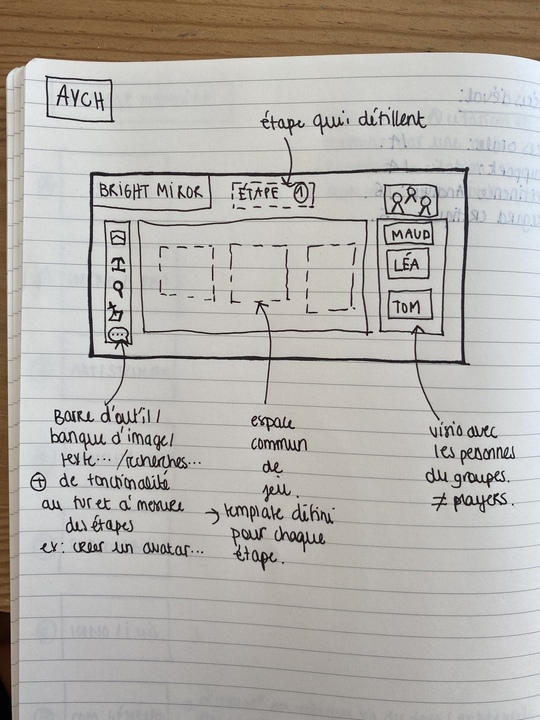 AYCH
étape qui défillent
BRIGHT MIROR
ÉTAPE 1
MAUD
LÉA
TOM
Barre d'outil /
banque d'image /
texte... / recherches...
+ de fonctionalité
au fur et à mesure
des étapes
ex: créer un avatar...
espace
commun
de
jeu.
→ template défini
pour chaque
étape.
visio avec
les personnes
du groupes.
≠ players.